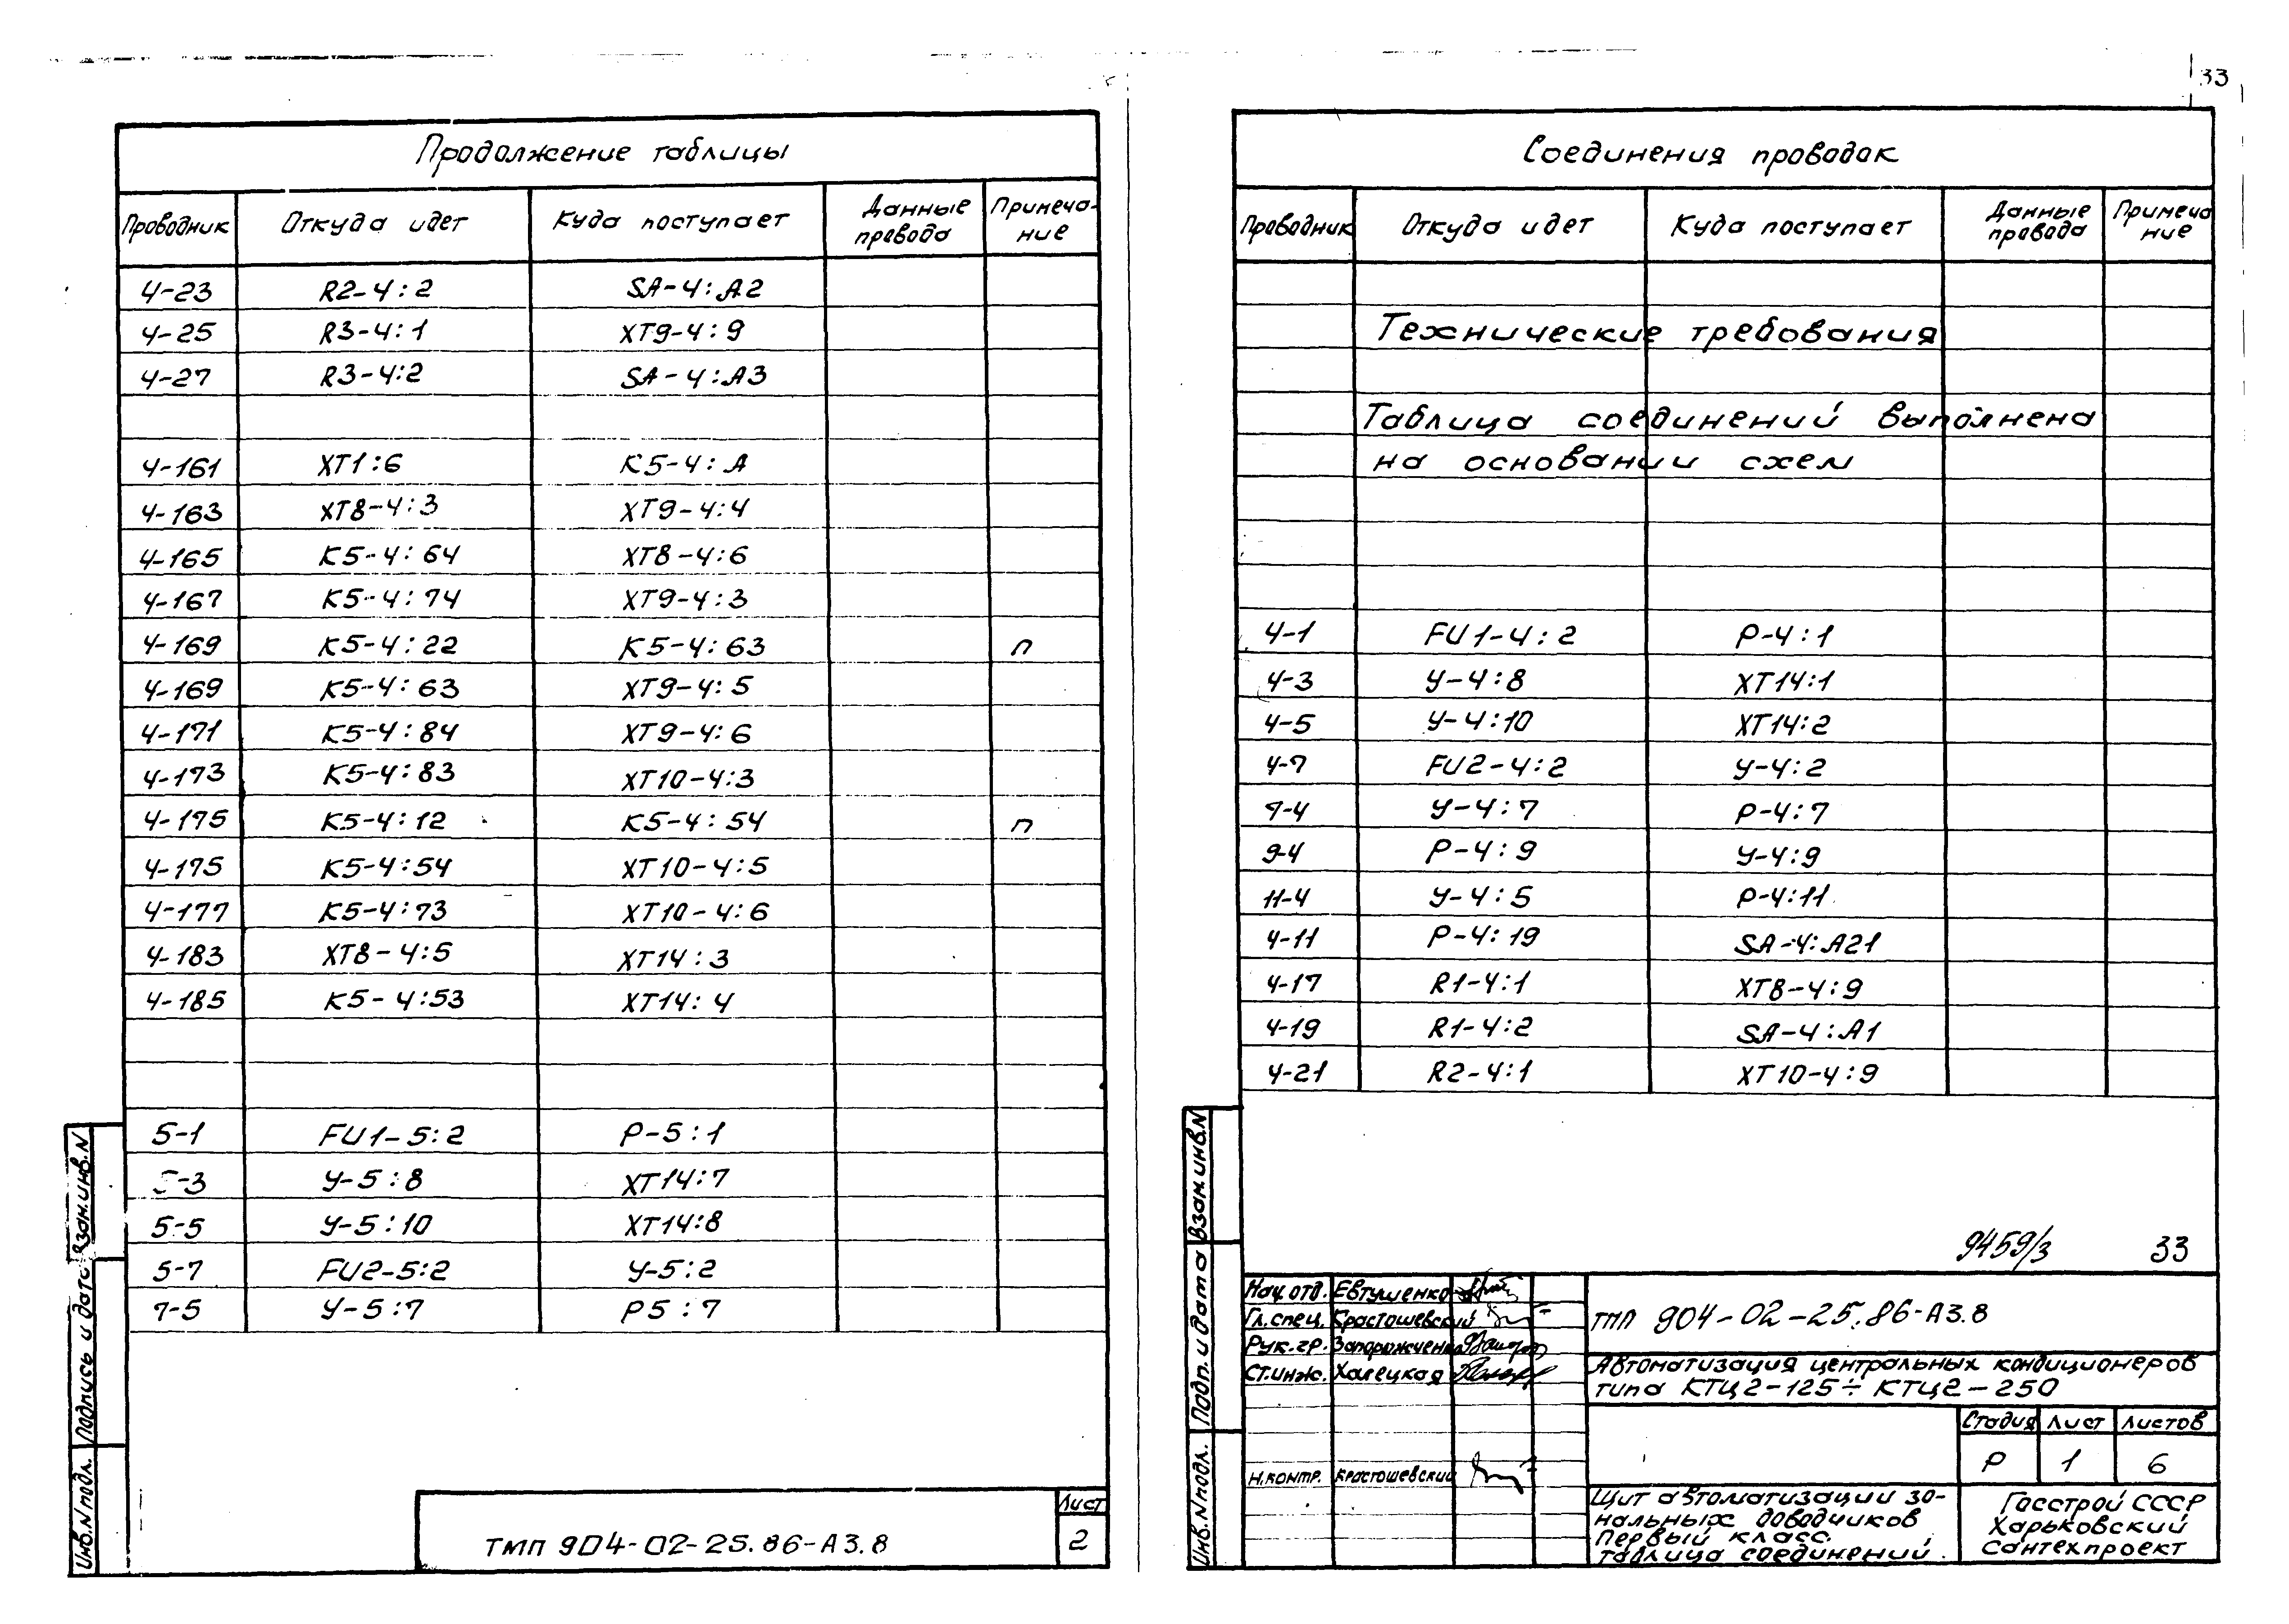 33
Продолжение таблицы
Проводник Откуда идет Куда поступает Данные провода Примеча-ние
4-23 R2-4:2 SA-4:A2
4-25 R3-4:1 XT9-4:9
4-27 R3-4:2 SA-4:A3
4-161 XT1:6 K5-4:A
4-163 XT8-4:3 XT9-4:4
4-165 K5-4:64 XT8-4:6
4-167 K5-4:74 XT9-4:3
4-169 K5-4:22 K5-4:63 п
4-169 K5-4:63 XT9-4:5
4-171 K5-4:84 XT9-4:6
4-173 K5-4:83 XT10-4:3
4-175 K5-4:12 K5-4:54 п
4-175 K5-4:54 XT10-4:5
4-177 K5-4:73 XT10-4:6
4-183 XT8-4:5 XT14:3
4-185 K5-4:53 XT14:4
5-1 FU1-5:2 P-5:1
5-3 У-5:8 XT14:7
5-5 У-5:10 XT14:8
5-7 FU2-5:2 У-5:2
7-5 У-5:7 P5:7
Взам.инв.N
Подпись и дата
Инв.N подл.
ТМП 904-02-25.86-А3.8
Лист
2
Соединения проводок
Проводник Откуда идет Куда поступает Данные провода Примеча ние
Технические требования
Таблица соединений выполнена
на основании схем
4-1 FU1-4:2 P-4:1
4-3 У-4:8 XT14:1
4-5 У-4:10 XT14:2
4-7 FU2-4:2 У-4:2
7-4 У-4:7 P-4:7
9-4 P-4:9 У-4:9
11-4 У-4:5 P-4:11
4-11 P-4:19 SA-4:A21
4-17 R1-4:1 XT8-4:9
4-19 R1-4:2 SA-4:A1
4-21 R2-4:1 XT10-4:9
Взам.инв.N
Подп. и дата
Инв.N подл.
9459/3 33
Нач.отд. Евтушенко
Гл.спец. Крастошевский
Рук.гр. Запорожченко
Ст.инж. Халецкая
Н.контр. Крастошевский
ТМП 904-02-25.86-А3.8
Автоматизация центральных кондиционеров
типа КТЦ2-125÷КТЦ2-250
Стадия Лист Листов
Р 1 6
Щит автоматизации зо-
нальных доводчиков
Первый класс.
Таблица соединений.
Госстрой СССР
Харьковский
Сантехпроект